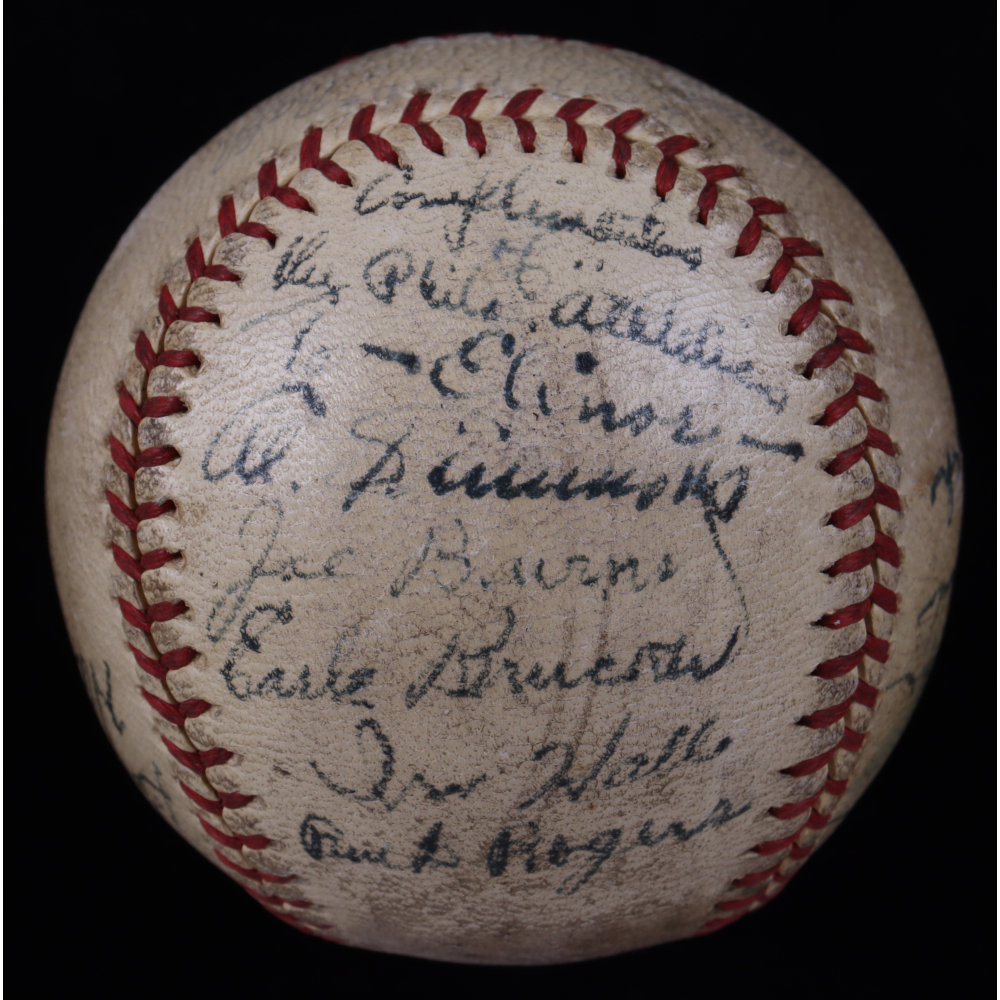 Compliments
of
the Phila. Athletics
To - Elinor -
Al. Simmons
Joe Burns
Earle Brucker
Irv Hall
Rogers